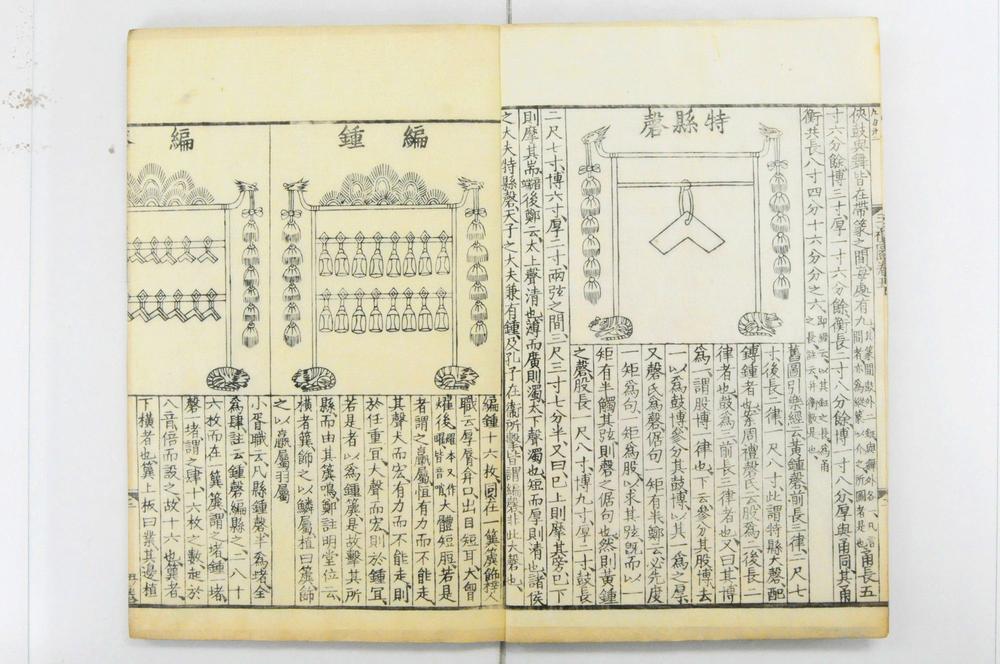 俠鼓與舞皆在帶篆之間每處有九
寸六分餘博三寸厚一寸六分餘衡長二寸八分餘博一寸八分厚與甬同其甬
衡共長八寸四分十六分分之六
特縣磬
舊圖引樂經云黃鍾磬前長三律二尺七
寸後長二律一尺八寸此謂特縣大磬配
鎛鍾者也案周禮磬氏云股為二後長二
律者也鼓為三前長三律者也又曰其博
為一謂股博一律也下云參分其股博去
一以為鼓博參分其鼓博以其一為之厚
又磬氏為磬倨句一矩有半鄭云必先度
一矩為句一矩為股以求其弦既而以一
矩有半觸其弦則磬之倨句也然則黃鍾
之磬股長一尺八寸博九寸厚二寸鼓長
二尺七寸博六寸厚二寸兩弦之間三尺三寸七分半又曰已上則摩其旁已下
則摩其耑後鄭云太上聲清也薄而廣則濁太下聲濁也短而厚則清也諸侯
之大夫特縣磬天子之大夫兼有鍾
編鍾
編鍾十六枚同在一簨簴
職云厚脣弇口出目短耳大匈
燿後大體短脰若是
者謂之臝屬恆有力而不能走
其聲大而宏有力而不能走則
於任重宜大聲而宏則於鍾宜
若是者以為鍾簴是故擊其所
縣而由其簴鳴鄭註明堂位云
橫者簨飾之以鱗屬植曰簴飾
之以臝屬羽屬
編
小胥職云凡縣鍾磬半為堵全
為肆註云鍾磬編縣之二八十
六枚而在一簨簴謂之堵鍾一堵
磬一堵謂之肆十六枚之數起於
八音倍而設之故十六也簨者
下橫者也簨上板曰業其邊植